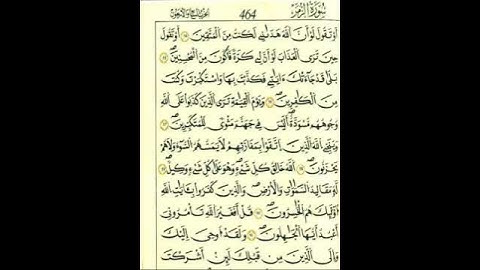 سُورَةُ الزُّمَرِ 464 الجزء الرابع والعشرون
أَوْ تَقُولَ لَوْ أَنَّ اللَّهَ هَدَىٰنِي لَكُنتُ مِنَ الْمُتَّقِينَ أَوْ تَقُولَ
حِينَ تَرَى الْعَذَابَ لَوْ أَنَّ لِي كَرَّةً فَأَكُونَ مِنَ الْمُحْسِنِينَ
بَلَىٰ قَدْ جَاءَتْكَ ءَايَٰتِي فَكَذَّبْتَ بِهَا وَاسْتَكْبَرْتَ وَكُنتَ
مِنَ الْكَٰفِرِينَ وَيَوْمَ الْقِيَٰمَةِ تَرَى الَّذِينَ كَذَبُوا عَلَى اللَّهِ
وُجُوهُهُم مُّسْوَدَّةٌ أَلَيْسَ فِي جَهَنَّمَ مَثْوًى لِّلْمُتَكَبِّرِينَ
وَيُنَجِّي اللَّهُ الَّذِينَ اتَّقَوْا بِمَفَازَتِهِمْ لَا يَمَسُّهُمُ السُّوءُ وَلَا هُمْ
يَحْزَنُونَ اللَّهُ خَٰلِقُ كُلِّ شَيْءٍ وَهُوَ عَلَىٰ كُلِّ شَيْءٍ وَكِيلٌ
لَّهُ مَقَالِيدُ السَّمَٰوَٰتِ وَالْأَرْضِ وَالَّذِينَ كَفَرُوا بِـَٔايَٰتِ اللَّهِ
أُولَٰئِكَ هُمُ الْخَٰسِرُونَ قُلْ أَفَغَيْرَ اللَّهِ تَأْمُرُونِّي
أَعْبُدُ أَيُّهَا الْجَٰهِلُونَ وَلَقَدْ أُوحِيَ إِلَيْكَ
وَإِلَى الَّذِينَ مِن قَبْلِكَ لَئِنْ أَشْرَكْتَ